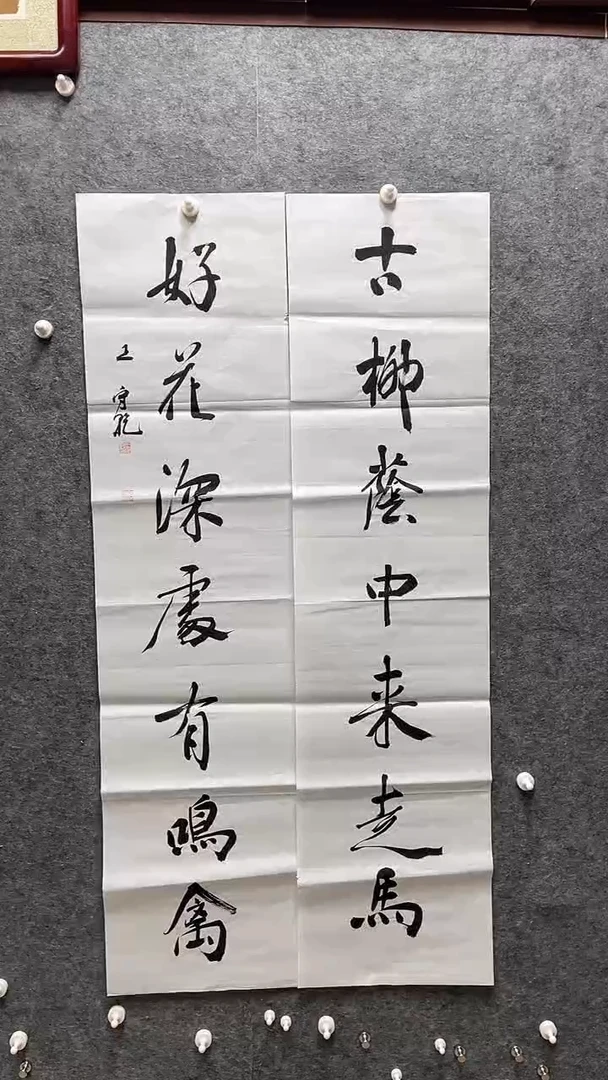 古柳蔭中来走馬
好花深處有鳴禽
王守乾